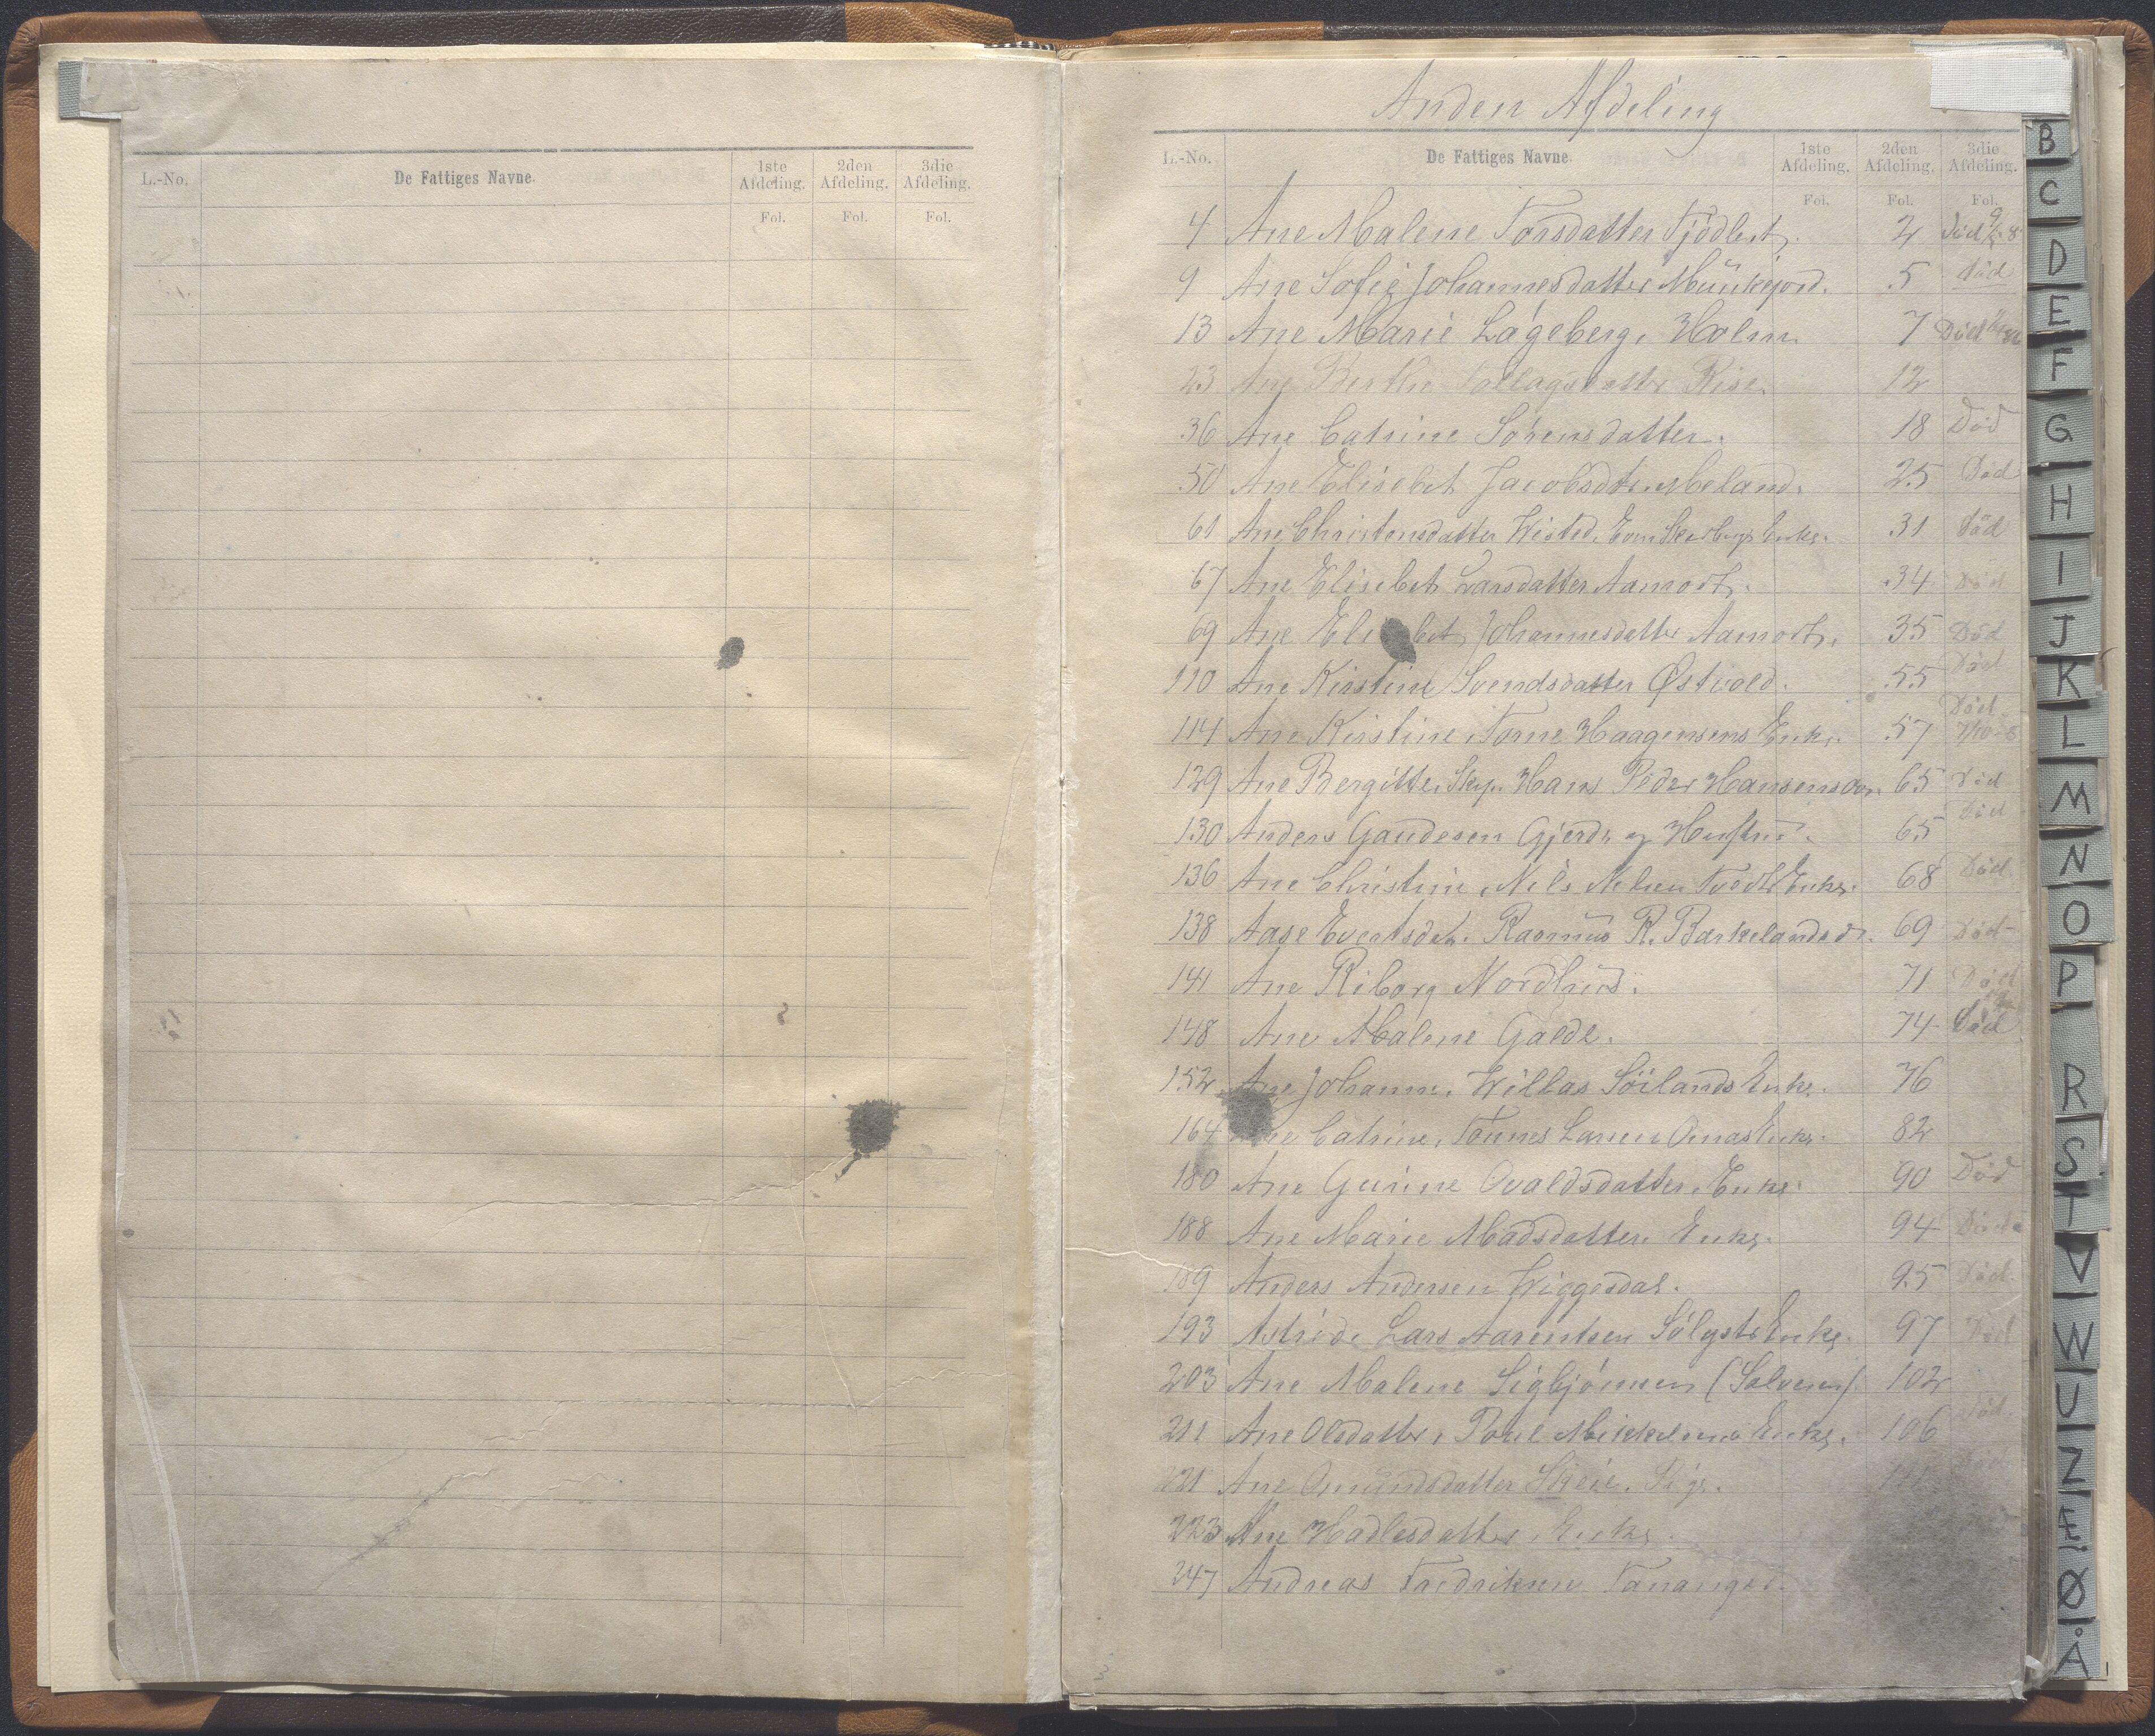 L.-No. De Fattiges Navne. 1ste Afdeling. 2den Afdeling. 3die Afdeling.
Fol. Fol. Fol.
Anden Afdeling
L.-No. De Fattiges Navne. 1ste Afdeling. 2den Afdeling. 3die Afdeling.
Fol. Fol. Fol.
4 Ane Malene Torsdatter 2 Død
9 Ane Sofie Johannesdatter 5 Død
13 Ane Marie Lageberg, Holm. 7 Død
23 Ane Berthe Tollagsdatter Rise. 12
36 Ane Catrine Sørensdatter. 18 Død
50 Ane Elisebet Jacobsdtr. Meland. 25 Død
61 Ane Christensdatter Wisted, Enke. 31 Død
67 Ane Elisebet Larsdatter Aamodt. 34 Død
69 Ane Johannesdatter Aamodt. 35 Død
110 Ane Kirstine Svendsdatter Østvold. 55 Død
114 Ane Kirstine, Haagensens Enke. 57 Død
129 Ane Bergitte, Hans Peder Hansens 65 Død
130 Anders Gaudesen Gjerde og Hustru. 65 Død
136 Ane Christine, Nils Nelsen Tvedt Enke. 68 Død
138 Aase Evertsdtr. Rasmus R. Barkelands 69 Død
141 Ane Riborg Nordhus. 71 Død
148 Ane Malene Galde. 74 Død
152 Ane Johanne, Willas Søilands Enke. 76
164 Catrine, Tønnes Larsen Enke. 82
180 Ane Gurine Osvaldsdatter, Enke. 90 Død
188 Ane Marie Madsdatter, Enke. 94 Død
189 Anders Andersen Wiggesdal. 95 Død
193 Astride Lars Aarentsen Sølyst Enke. 97 Død
203 Ane Malene Sigbjørnsen 102
211 Ane Olsdatter, Poul Mikkelsens Enke. 106 Død
221 Ane Omundsdatter Skeie. Død
223 Ane Hadlesdatter, Enke.
247 Andreas Fredriksen Tananger.
3
B
C
D
E
F
G
H
I
J
K
L
M
N
O
P
R
S
T
V
W
U
Z
Æ
Ø
Å